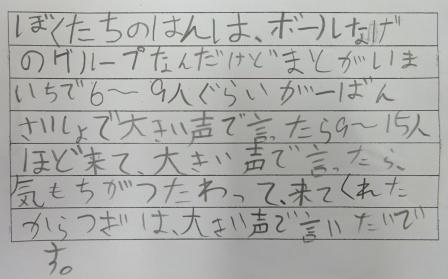 ぼくたちのはんは、ボールなげ
のグループなんだけどまとがいま
いちで6〜9人ぐらいがーばん
さいしょで大きい声で言ったら9〜15人
ほど来て、大きい声で言ったら、
気もちがつたわって、来てくれた
からつぎは、大きい声で言いたいで
す。